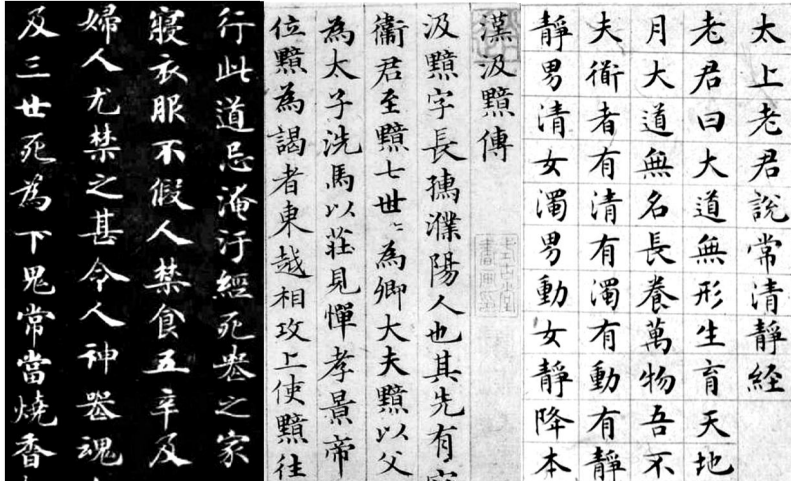 太上老君說常清靜経
老君曰大道無形生育天地
月大道無名長養萬物吾不
夫衜者有清有濁有動有靜
靜男清女濁男動女靜降本
漢汲黯傳
汲黯字長孺濮陽人也其先有
衞君至黯七世〻為卿大夫黯以父
為太子洗馬以莊見憚孝景帝
位黯為謁者東越相攻上使黯往
行此道忌淹汙經死喪之家
寢衣服不假人禁食五辛及
婦人尤禁之甚令人神喪魂
及三世死為下鬼常當燒香